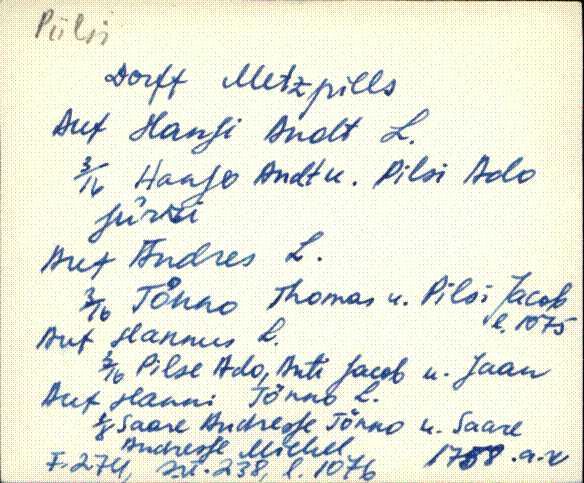 Pilsi
Dorff Metzpills
Auf Hansi Andt L.
3/16 Hansso Andt u. Pilsi Ado
Jürri
Auf Andres L.
3/16 Tönno Thomas u. Pilsi Jacob
l. 1075
Auf Hannus L.
3/16 Pilse Ado, Anti Jacob u. Jaan
Auf Hanni Tönno L.
1/8 Saare Andresse Tönno u. Saare
Andresse Michel
F. 274, 238, l. 1076 1758. a. x